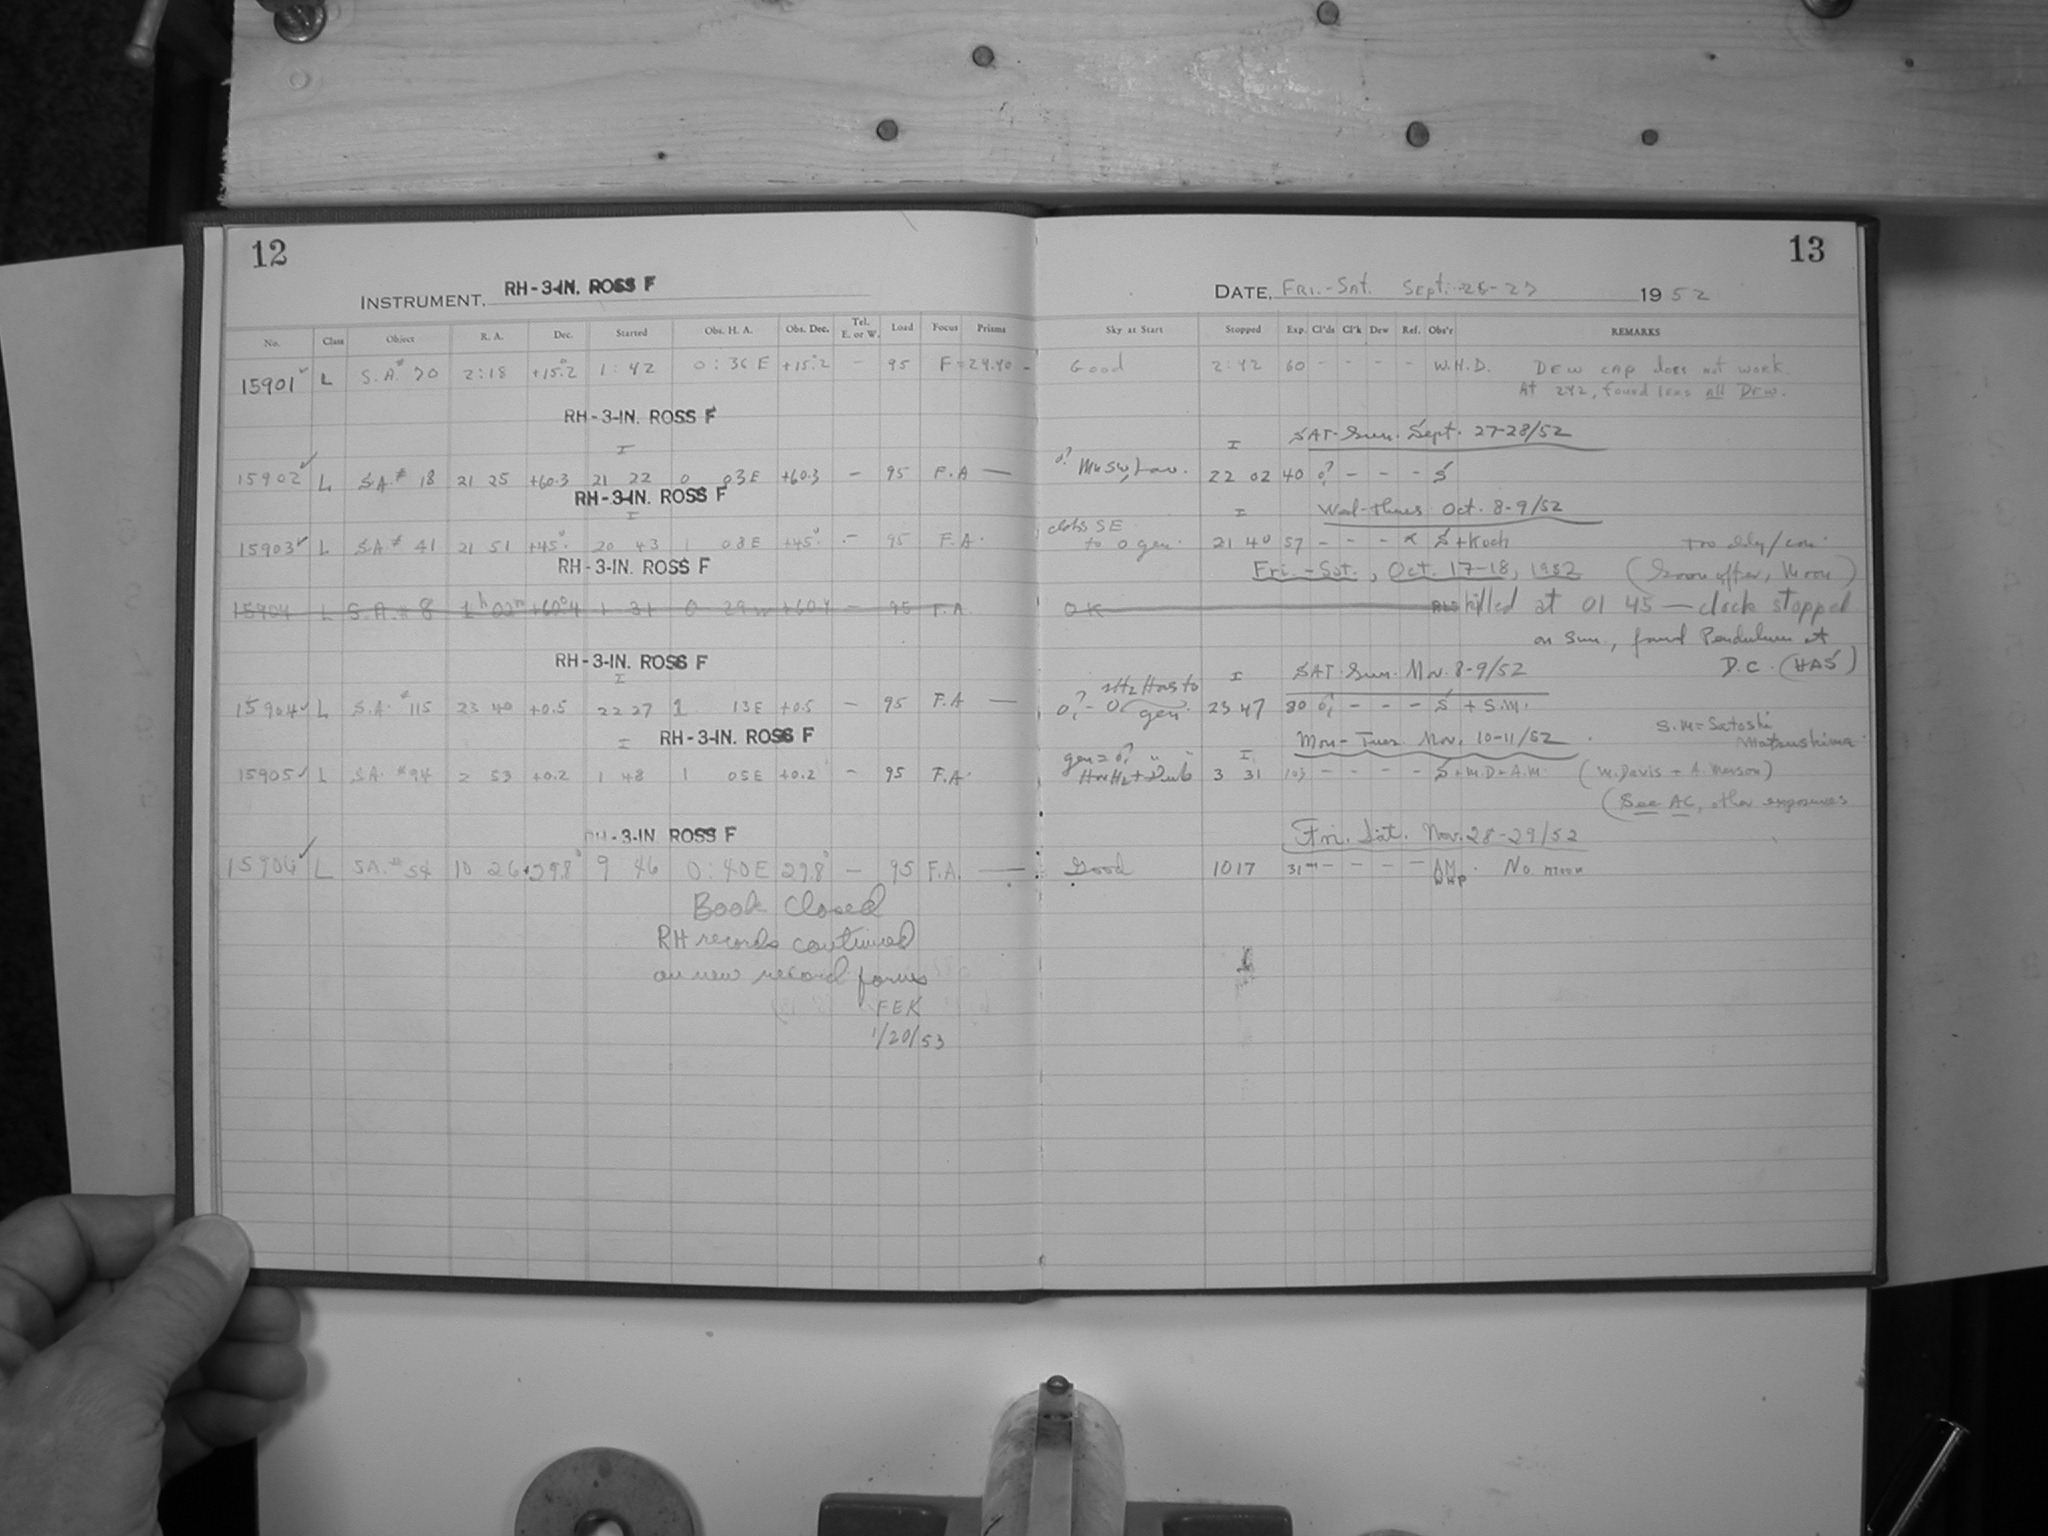 12
INSTRUMENT, RH-3-IN. ROSS F
No. Class Object R. A. Dec. Started Obs. H. A. Obs. Dec. Tel. E. or W. Load Focus Prisms
15901 L S.A.# 70 2:18 +15.2 1:42 0:36 E +15.2 - 95 F=24.40 -
RH-3-IN. ROSS F
I
15902 L S.A.# 18 21 25 +60.3 21 22 0 03E +60.3 - 95 F.A -
RH-3-IN. ROSS F
I
15903 L S.A.# 41 21 51 +45° 20 43 1 08E +45° - 95 F.A.
RH-3-IN. ROSS F
15904 L S.A.# 8 1h 02m +60°4 1 31 0 29 +60.4 - 95 F.A.
RH-3-IN. ROSS F
I
15904 L S.A.# 115 23 40 +0.5 22 27 1 13E +0.5 - 95 F.A -
I RH-3-IN. ROSS F
15905 L S.A. #94 2 53 +0.2 1 48 1 05E +0.2 - 95 F.A.
RH-3-IN ROSS F
15906 L S.A.# 54 10 26 +29.8° 9 46 0:40E 29.8° - 95 F.A. -
Book Closed
RH records continued
on new record forms
FEK
1/20/53
13
DATE, FRI.-SAT. Sept. 26-27 1952
Sky at Start Stopped Exp. Cl'ds Cl'k Dew Ref. Obs'r REMARKS
Good 2:42 60 - - - - W.H.D. DEW CAP does not work.
At 242, found lens all DEW.
I SAT-Sun. Sept. 27-28/52
22 02 40 - - - S
I Wed-Thurs Oct. 8-9/52
SE
to 0 gen. 21 40 57 - - - S+Koch
Fri.-Sat., Oct. 17-18, 1952 (Soon after, Moon)
OK killed at 01 45 - clock stopped
on Sun, found Pendulum at
D.C. (HAS)
I SAT-Sun. Nov. 8-9/52
gen. 23 47 80 - - - S + S.M.
S.M = Satoshi
Matsushima
I Mon-Tues Nov. 10-11/52
3 31 103 - - - - S+M.D+A.M. (M. Davis + A. Merson)
(See AC, other exposures
Fri. Sat. Nov. 28-29/52
Good 10 17 31m - - - - AM WHP. No moon